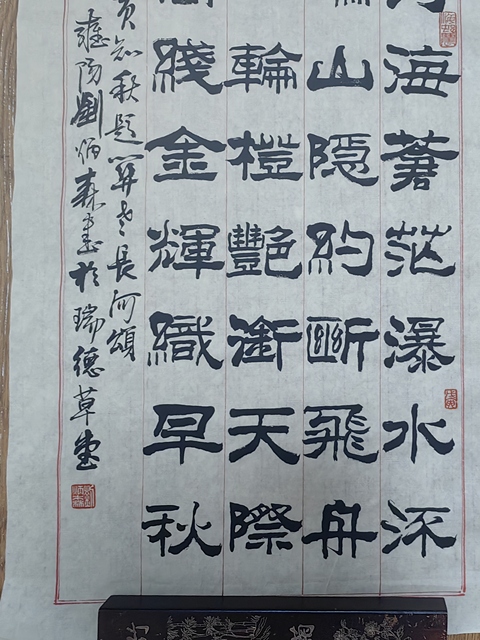 海蒼茫瀑水流
山隱約斷飛舟
輪橙艷銜天際
綫金輝織早秋
知秋題長河頌
雍陽劉炳森書於瑞德草堂